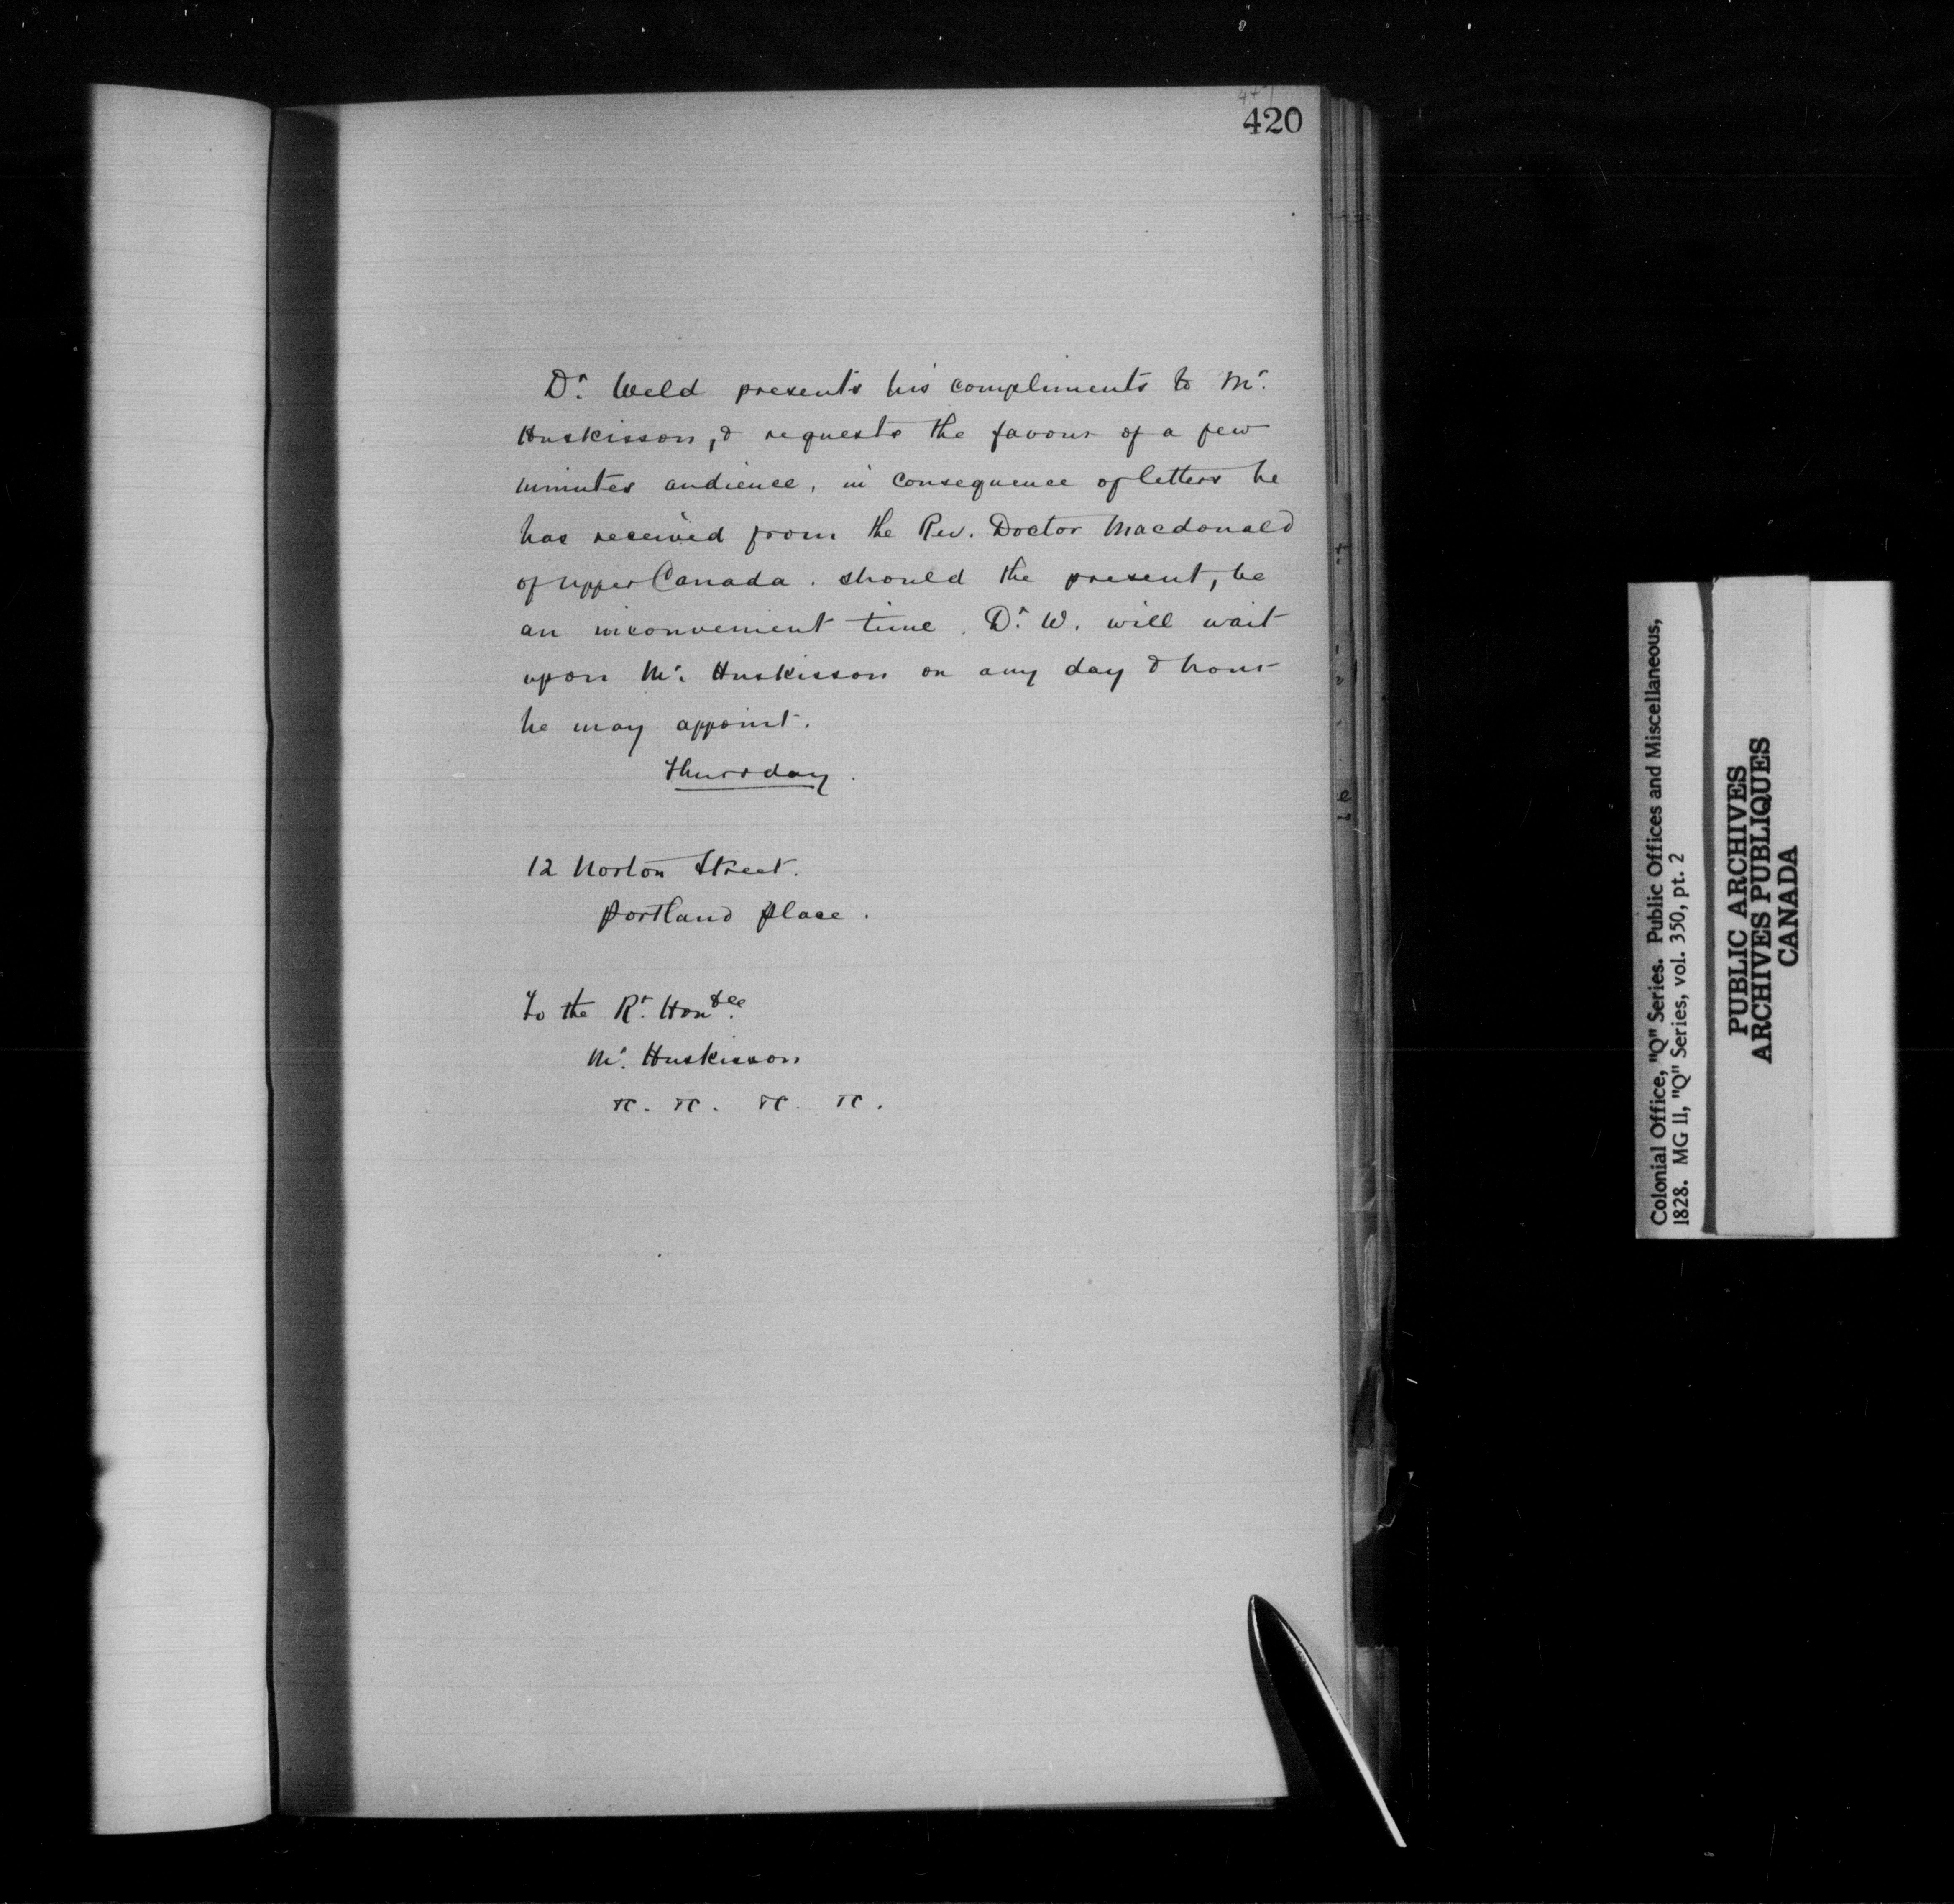 420
Dr. Weld presents his compliments to Mr.
Huskisson, & requests the favour of a few
minutes audience, in consequence of letters he
has received from the Rev. Doctor Macdonald
of upper Canada. should the present, be
an inconvenient time. Dr. W. will wait
upon Mr. Huskisson on any day & hour
he may appoint.
Thursday.
12 Norton Street.
Portland Place.
To the Rt. Honble.
Mr. Huskisson
&c. &c. &c. &c.
Colonial Office, "Q" Series. Public Offices and Miscellaneous,
1828. MG 11, "Q" Series, vol. 350, pt. 2
PUBLIC ARCHIVES
ARCHIVES PUBLIQUES
CANADA